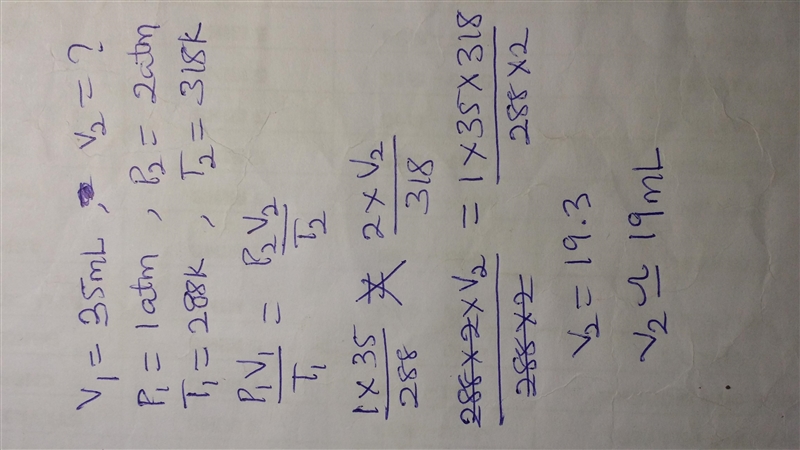 V₁ = 35mL, V₂ = ?
P₁ = 1atm, P₂ = 2atm
T₁ = 288K, T₂ = 318K
P₁V₁/T₁ = P₂V₂/T₂
1 × 35/288 2 × V₂/318
288×2×V₂/288×2 = 1×35×318/288×2
V₂ = 19.3
V₂ ≃ 19mL